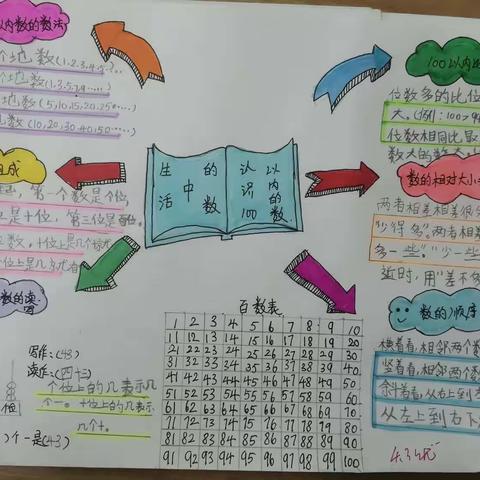 以内数的数法
个地数(1,2,3,4,5,...
个地数(1,3,5,7,9......)
地数(5,10,15,20,25......)
地数(10,20,30,40,50......)
组成
第一个数是个位,
是十位,第三位是百位。
数,十位上是几
个位上是几
数的读写
写作:(43)
读作:(四十三)
个位上的几表示几
个一。十位上的几表示
几个十。
个一是(43)
生活中的数
认识100以内的数.
100以内
位数多的比位
大。(例:100>9
位数相同比最
数大的数大
数的相对大小
两者相差相差很
"少得多"。两者相差
多一些。""少一些
近时,用"差不多
数的顺序
横着看,相邻两个数
竖着看,相邻两个数
斜着看,从右上到
从左上到右下
百数表
1 2 3 4 5 6 7 8 9 10
11 12 13 14 15 16 17 18 19 20
21 22 23 24 25 26 27 28 29 30
31 32 33 34 35 36 37 38 39 40
41 42 43 44 45 46 47 48 49 50
51 52 53 54 55 56 57 58 59 60
61 62 63 64 65 66 67 68 69 70
71 72 73 74 75 76 77 78 79 80
81 82 83 84 85 86 87 88 89 90
91 92 93 94 95 96 97 98 99 100